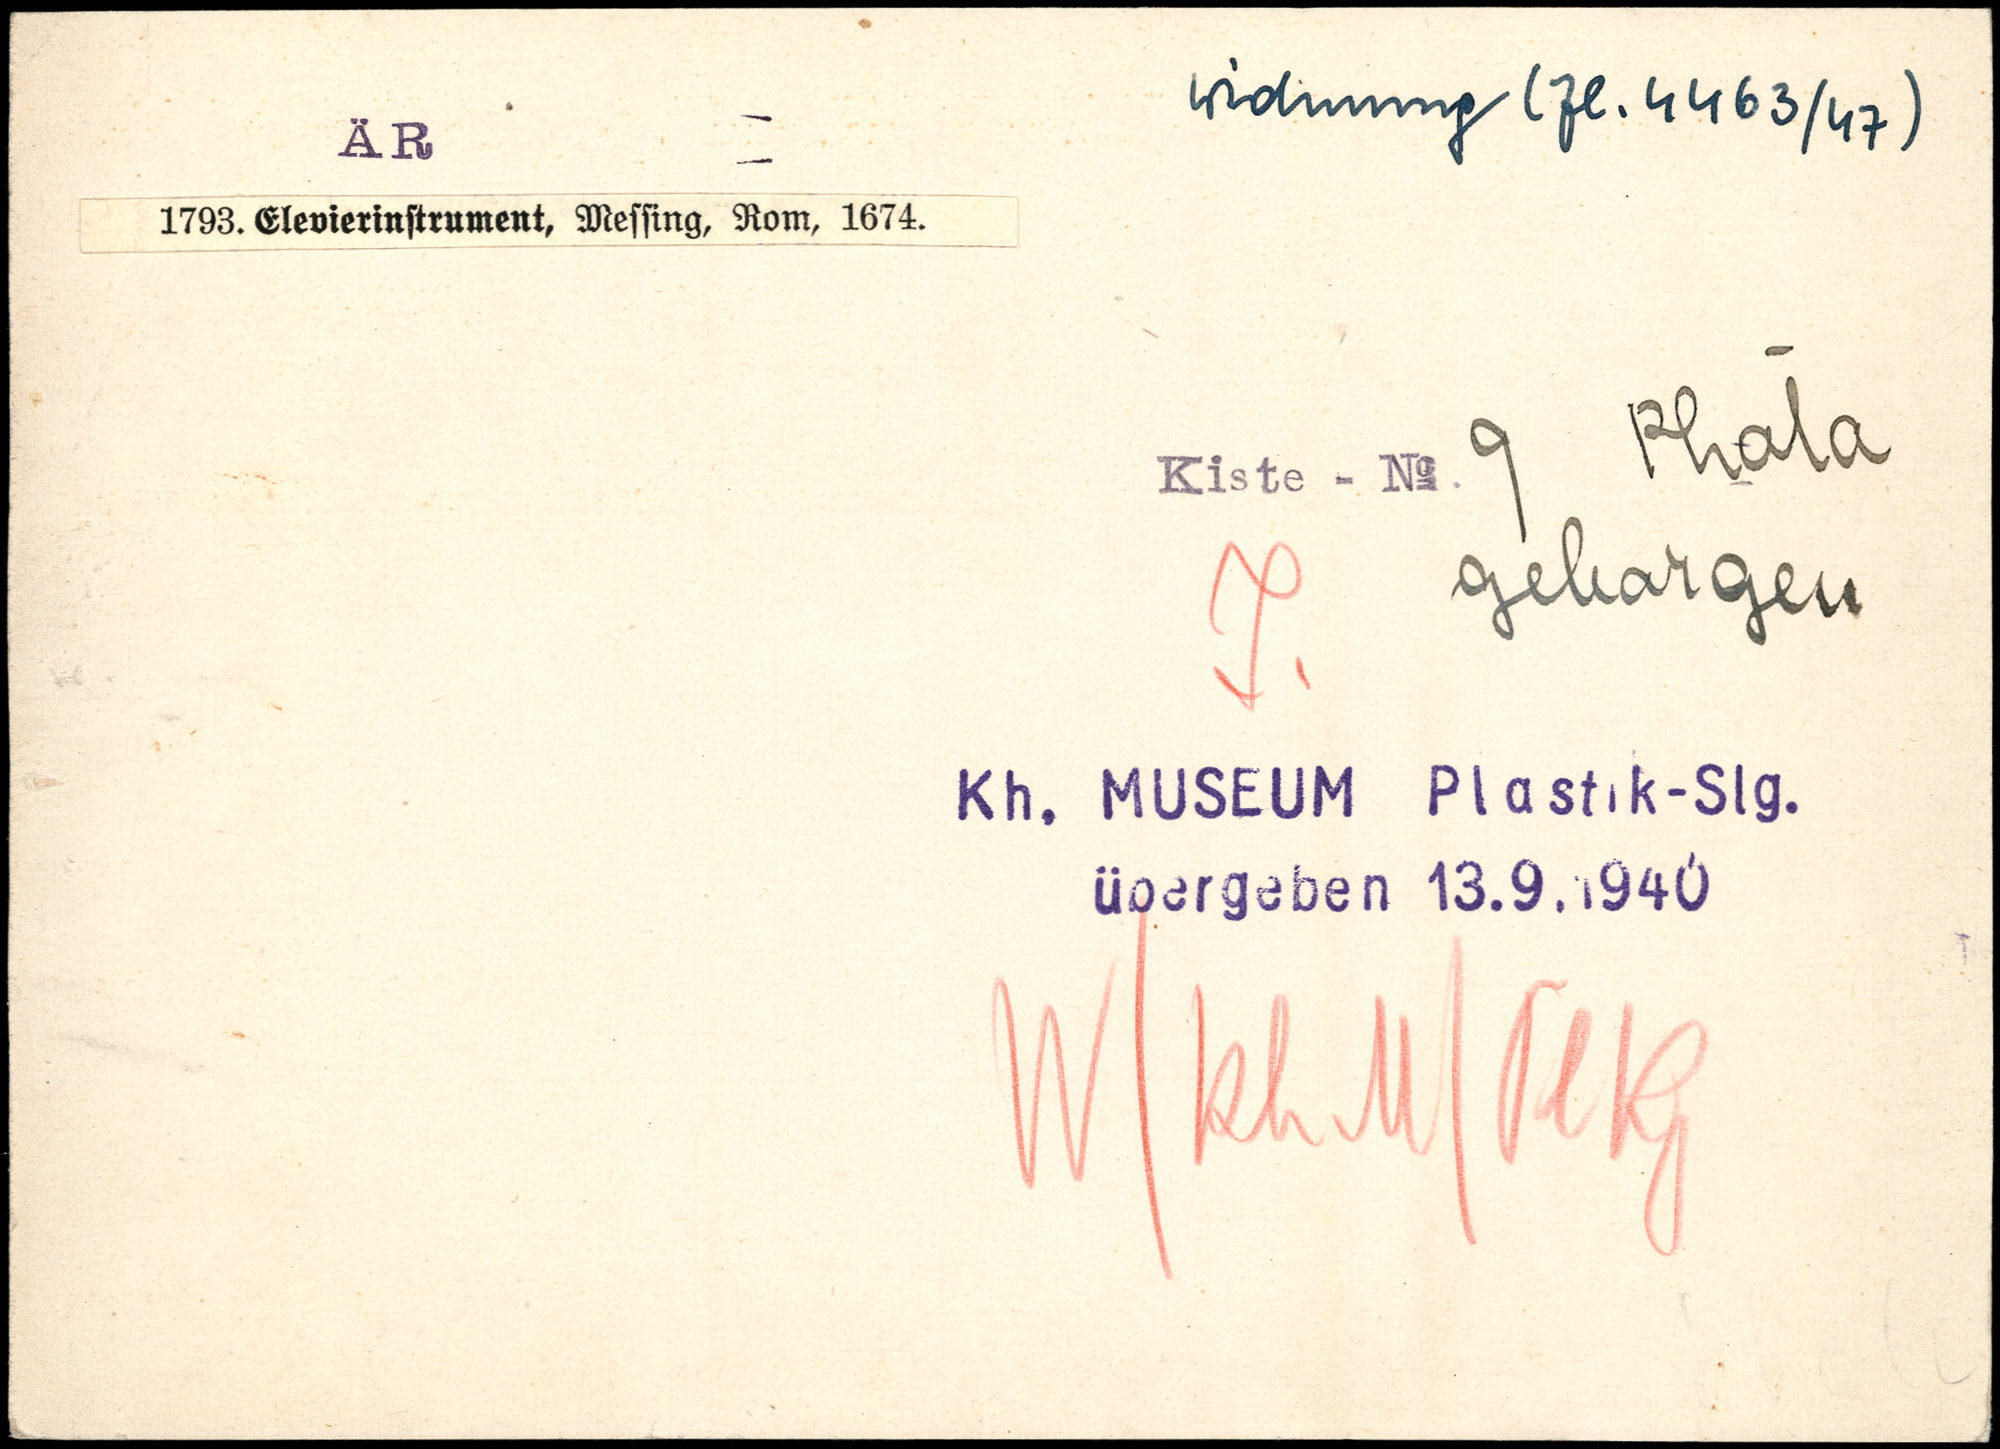 widmung (Zl. 4463/47)
ÄR
1793. Elevierinstrument, Messing, Rom, 1674.
Kiste - No. 9 Photo
geborgen
J.
Kh. MUSEUM Plastik-Slg.
übergeben 13.9.1940
W/Kh.M/